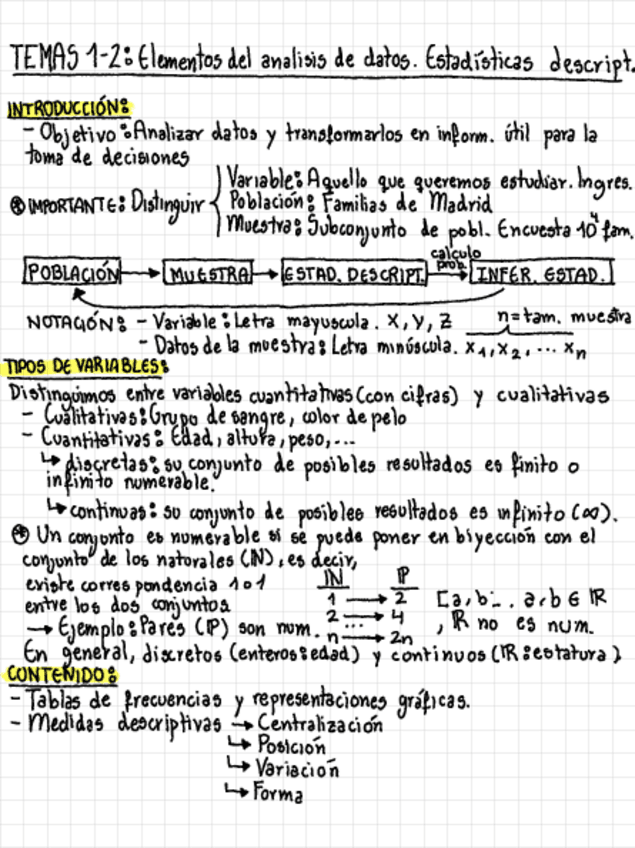 TEMAS 1-2: Elementos del analisis de datos. Estadísticas descript.
INTRODUCCIÓN:
- Objetivo: Analizar datos y transformarlos en inform. útil para la
toma de decisiones
Variable: Aquello que queremos estudiar. Ingres.
⊛ IMPORTANTE: Distinguir { Población: Familias de Madrid
Muestra: Subconjunto de pobl. Encuesta 10⁴ fam.
calculo
prob.
POBLACIÓN → MUESTRA → ESTAD. DESCRIPT. → INFER. ESTAD.
NOTACIÓN: - Variable: Letra mayuscula. X, Y, Z n = tam. muestra
- Datos de la muestra: Letra minúscula. x₁, x₂, ... xₙ
TIPOS DE VARIABLES:
Distinguimos entre variables cuantitativas (con cifras) y cualitativas
- Cualitativas: Grupo de sangre, color de pelo
- Cuantitativas: Edad, altura, peso, ...
↳ discretas: su conjunto de posibles resultados es finito o
infinito numerable.
↳ continuas: su conjunto de posibles resultados es infinito (∞).
⊛ Un conjunto es numerable si se puede poner en biyección con el
conjunto de los naturales (ℕ), es decir,
existe correspondencia 1 a 1 ℕ ℙ
entre los dos conjuntos 1 → 2 [a, b]... a, b ∈ ℝ
→ Ejemplo: Pares (ℙ) son num. 2 → 4 , ℝ no es num.
... n → 2n
En general, discretos (enteros: edad) y continuos (ℝ: estatura)
CONTENIDO:
- Tablas de frecuencias y representaciones gráficas.
- Medidas descriptivas → Centralización
↳ Posición
↳ Variación
↳ Forma